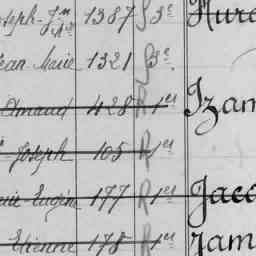 oseph-J.M 1387 S 3e Hur
ean Marie 1321 S 3e
Amand 428 R 1er Izam
Joseph 105 R 1er
rie Eugène 177 R 1er Jaco
Etienne 178 R 1er Jam